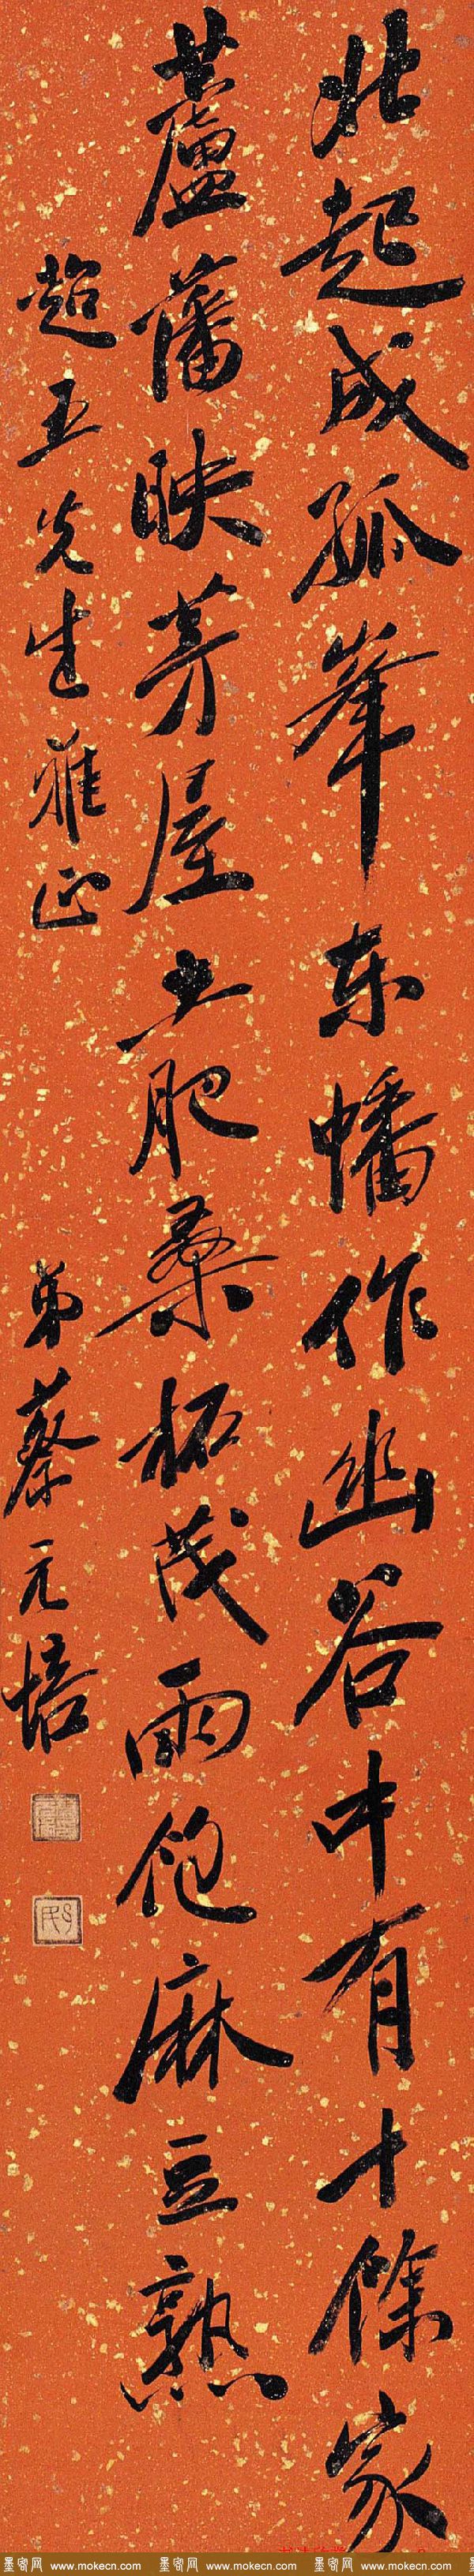 北起成孤峯东蟠作幽谷中有十餘家
蘆藩映茅屋土肥桑柘茂雨飽麻豆熟
超五先生雅正
弟蔡元培
墨客网 www.mokecn.com 墨客网 www.mokecn.com 墨客网 www.mokecn.com